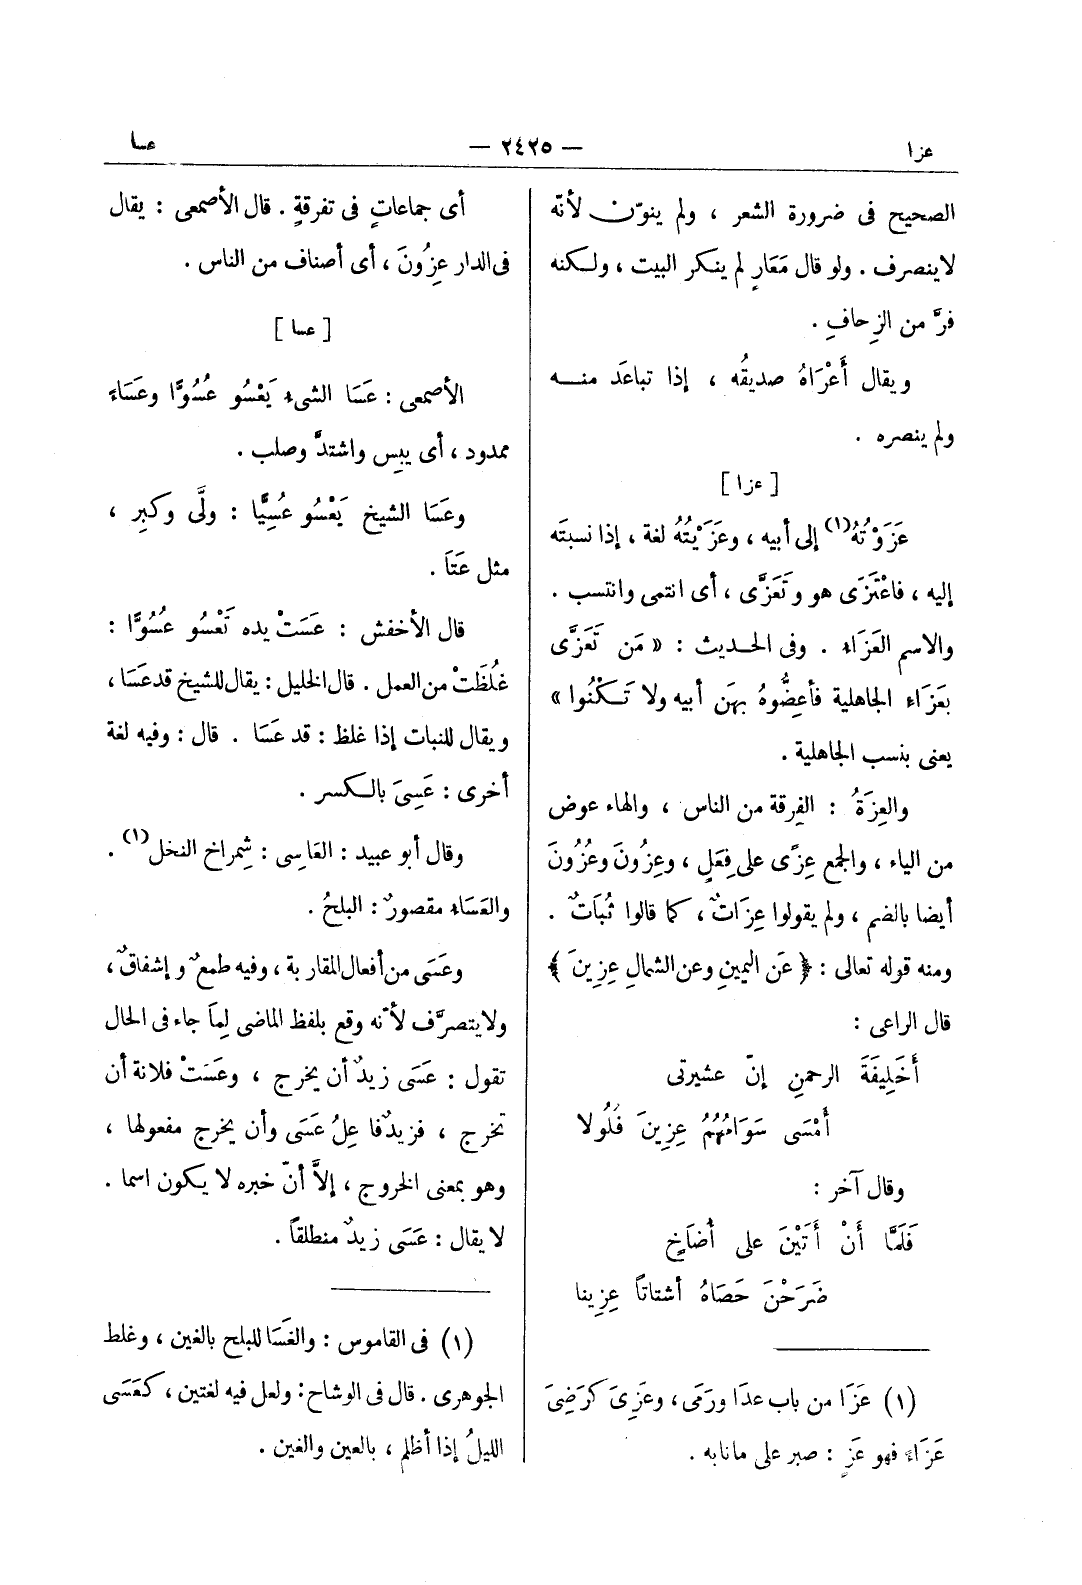 عزا
— ٢٤٢٥ —
عسا
الصحيح فى ضرورة الشعر ، ولم ينوّن لأنّه
لاينصرف . ولو قال مَعَارٍ لم ينكر البيت ، ولكنه
فرَّ من الزِحافِ .
ويقال أَعْرَاهُ صديقُه ، إذا تباعَد منه
ولم ينصره .
[ عزا ]
عَزَوْتُهُ(١) إلى أبيه ، وعَزَيْتُهُ لغة ، إذا نسبتَه
إليه ، فاعْتَزَى هو وتَعَزَّى ، أى انتمى وانتسب .
والاسم العَزَاء . وفى الحديث : « مَن تَعَزَّى
بعَزَاء الجاهلية فأعِضُّوهُ بهَن أبيه ولا تَكْنُوا »
يعنى بنسب الجاهلية .
والعِزَةُ : الفِرقة من الناس ، والهاء عوض
من الياء ، والجمع عِزًى على فِعَلٍ ، وعِزُونَ وعُزُونَ
أيضا بالضم ، ولم يقولوا عِزَاتٌ ، كما قالوا ثُبَاتٌ .
ومنه قوله تعالى : ﴿ عَن اليمينِ وعن الشمالِ عِزِينَ ﴾
قال الراعى :
أَخَلِيفَةَ الرحمنِ إنّ عشيرتى
أَمْسَى سَوَامُهُمُ عِزِينَ فُلُولا
وقال آخر :
فَلَمَّا أَنْ أَتَيْنَ على أُضَاخٍ
ضَرَحْنَ حَصَاهُ أشتاتًا عِزِينا
(١) عَزَا من باب عدَا ورَمَى، وعَزِىَ كَرَضِىَ
عَزَاءً فهو عَزٍ : صبر على مانابه .
أى جماعاتٍ فى تفرقةٍ . قال الأصمعى : يقال
فى الدار عِزُونَ ، أى أصناف من الناس .
[ عسا ]
الأصمعى : عَسَا الشىء يَعْسُو عُسُوًّا وعَسَاءً
ممدود ، أى يبِس واشتدَّ وصلب .
وعَسَا الشيخ يَعْسُو عُسِيًّا : ولَّى وكبِر ،
مثل عَتَا .
قال الأخفش : عَسَتْ يده تَعْسُو عُسُوًّا :
غلُظَتْ من العمل . قال الخليل : يقال للشيخ قد عَسَا ،
ويقال للنبات إذا غلظ : قد عَسَا . قال : وفيه لغة
أخرى : عَسِىَ بالكسر .
وقال أبو عبيد : العَاسِى : شِمراخ النخل(١) .
والعَسَاء مقصورٌ : البلحُ .
وعَسَى من أفعال المقاربة ، وفيه طمعٌ وإشفاقٌ ،
ولايتصرَّف لأنه وقع بلفظ الماضى لِمَا جاء فى الحال
تقول : عَسَى زيدٌ أن يخرج ، وعَسَتْ فلانة أن
تخرج ، فزيدٌ فاعِلُ عَسَى وأن يخرج مفعولها ،
وهو بمعنى الخروج ، إلاَّ أنّ خبره لا يكون اسما .
لا يقال : عَسَى زيدٌ منطلقاً .
(١) فى القاموس : والغَسَا للبلح بالغين ، وغلط
الجوهرى . قال فى الوشاح : ولعل فيه لغتين ، كعَسَى
الليلُ إذا أظلم ، بالعين والغين .